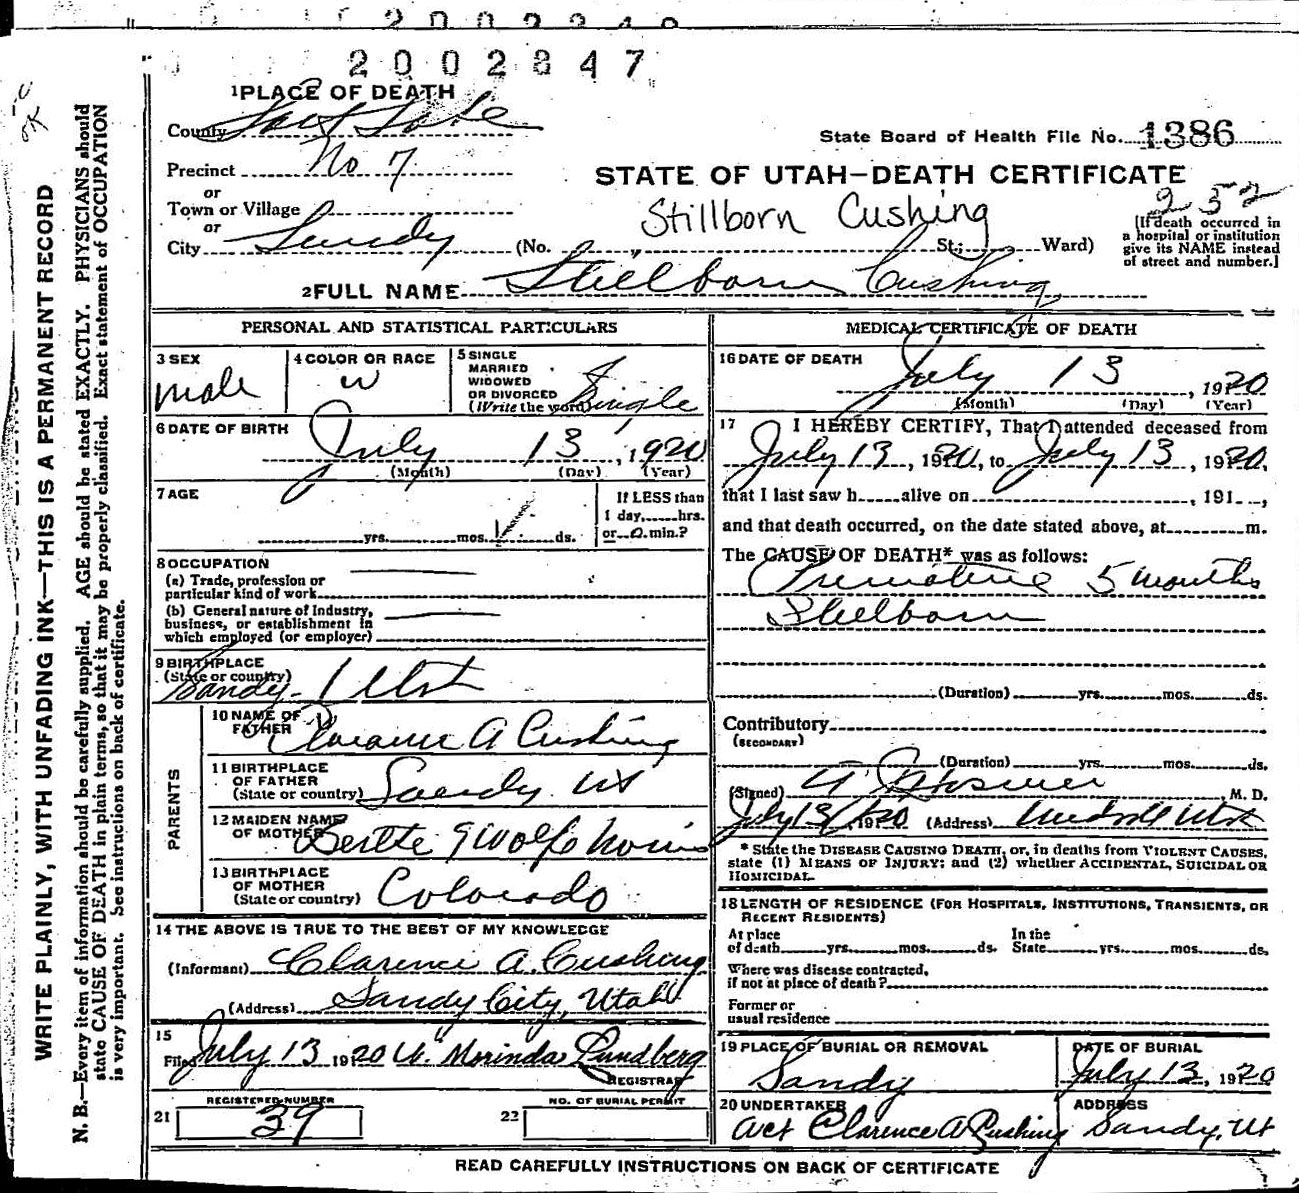 2002847
1 PLACE OF DEATH
County Salt Lake
State Board of Health File No. 1386
Precinct No 7
STATE OF UTAH—DEATH CERTIFICATE
or
Town or Village
252
Stillborn Cushing
or
City Sandy (No. St.; Ward)
[If death occurred in a hospital or institution give its NAME instead of street and number.]
2 FULL NAME Stillborn Cushing
PERSONAL AND STATISTICAL PARTICULARS
3 SEX male
4 COLOR OR RACE w
5 SINGLE MARRIED WIDOWED OR DIVORCED (Write the word) Single
6 DATE OF BIRTH
July 13, 1920
(Month) (Day) (Year)
7 AGE
yrs. mos. ds.
If LESS than 1 day, hrs. or 0 min.?
8 OCCUPATION
(a) Trade, profession or particular kind of work
(b) General nature of Industry, business, or establishment in which employed (or employer)
9 BIRTHPLACE
(State or country)
Sandy Utah
PARENTS
10 NAME OF FATHER Clarence A Cushing
11 BIRTHPLACE OF FATHER (State or country) Sandy Ut
12 MAIDEN NAME OF MOTHER
13 BIRTHPLACE OF MOTHER (State or country) Colorado
14 THE ABOVE IS TRUE TO THE BEST OF MY KNOWLEDGE
(Informant) Clarence A. Cushing
(Address) Sandy City, Utah
15
Filed July 13 1920 Morinda Lundberg
REGISTRAR
REGISTERED NUMBER
21 39
NO. OF BURIAL PERMIT
22
MEDICAL CERTIFICATE OF DEATH
16 DATE OF DEATH
July 13, 1920
(Month) (Day) (Year)
17 I HEREBY CERTIFY, That I attended deceased from
July 13, 1920, to July 13, 1920,
that I last saw h alive on , 191 ,
and that death occurred, on the date stated above, at m.
The CAUSE OF DEATH* was as follows:
Premature 5 months
Stillborn
(Duration) yrs. mos. ds.
Contributory
(SECONDARY)
(Duration) yrs. mos. ds.
(Signed) M. D.
July 13, 1920 (Address) Midvale Utah
* State the DISEASE CAUSING DEATH, or, in deaths from VIOLENT CAUSES,
state (1) MEANS OF INJURY; and (2) whether ACCIDENTAL, SUICIDAL OR
HOMICIDAL.
18 LENGTH OF RESIDENCE (FOR HOSPITALS, INSTITUTIONS, TRANSIENTS, OR
RECENT RESIDENTS)
At place of death yrs. mos. ds. In the State yrs. mos. ds.
Where was disease contracted,
if not at place of death?
Former or
usual residence
19 PLACE OF BURIAL OR REMOVAL
Sandy
DATE OF BURIAL
July 13, 1920
20 UNDERTAKER
Act Clarence A Cushing
ADDRESS
Sandy, Ut
READ CAREFULLY INSTRUCTIONS ON BACK OF CERTIFICATE
WRITE PLAINLY, WITH UNFADING INK—THIS IS A PERMANENT RECORD
N. B.—Every item of information should be carefully supplied. AGE should be stated EXACTLY. PHYSICIANS should
state CAUSE OF DEATH in plain terms, so that it may be properly classified. Exact statement of OCCUPATION
is very important. See instructions on back of certificate.